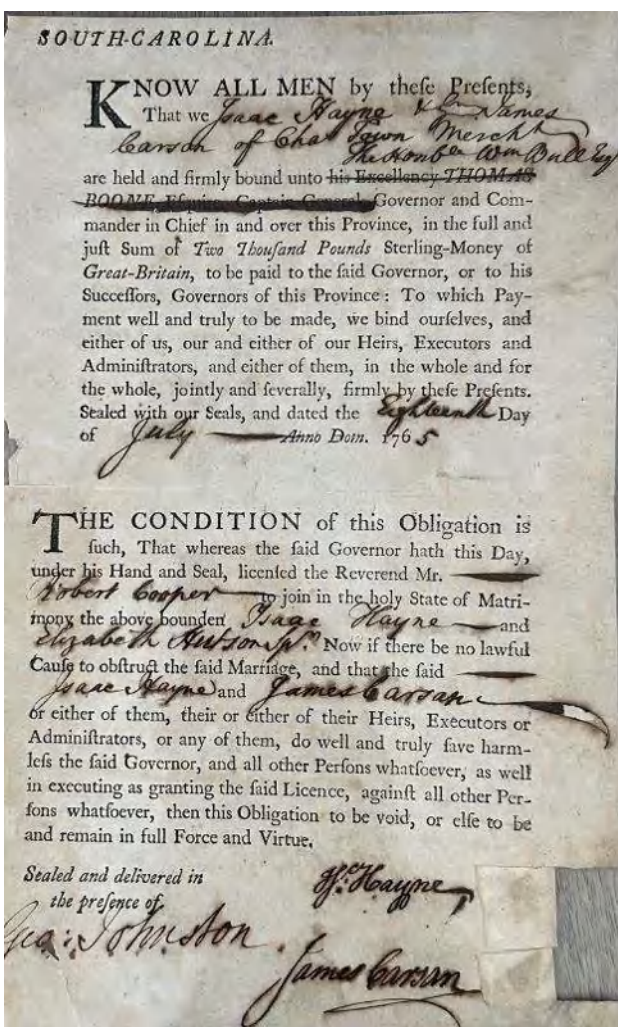 SOUTH-CAROLINA.
KNOW ALL MEN by theſe Preſents,
That we Isaac Hayne & James
Carson of Chas Town Mercht
The Honble Wm Bull Esq
are held and firmly bound unto his Excellency THOMAS
BOONE, Eſquire, Captain-General, Governor and Com-
mander in Chief in and over this Province, in the full and
juſt Sum of Two Thouſand Pounds Sterling-Money of
Great-Britain, to be paid to the ſaid Governor, or to his
Succeſſors, Governors of this Province: To which Pay-
ment well and truly to be made, we bind ourſelves, and
either of us, our and either of our Heirs, Executors and
Adminiſtrators, and either of them, in the whole and for
the whole, jointly and ſeverally, firmly by theſe Preſents.
Sealed with our Seals, and dated the Eighteenth Day
of July Anno Dom. 1765
THE CONDITION of this Obligation is
ſuch, That whereas the ſaid Governor hath this Day,
under his Hand and Seal, licenſed the Reverend Mr.
Robert Cooper to join in the holy State of Matri-
mony the above bounden Isaac Hayne and
Elizabeth Hutson Now if there be no lawful
Cauſe to obſtruct the ſaid Marriage, and that the ſaid
Isaac Hayne and James Carsan
or either of them, their or either of their Heirs, Executors or
Adminiſtrators, or any of them, do well and truly ſave harm-
leſs the ſaid Governor, and all other Perſons whatſoever, as well
in executing as granting the ſaid Licence, againſt all other Per-
ſons whatſoever, then this Obligation to be void, or elſe to be
and remain in full Force and Virtue.
Sealed and delivered in
the preſence of
Hayne
Geo: Johnston
James Carsan